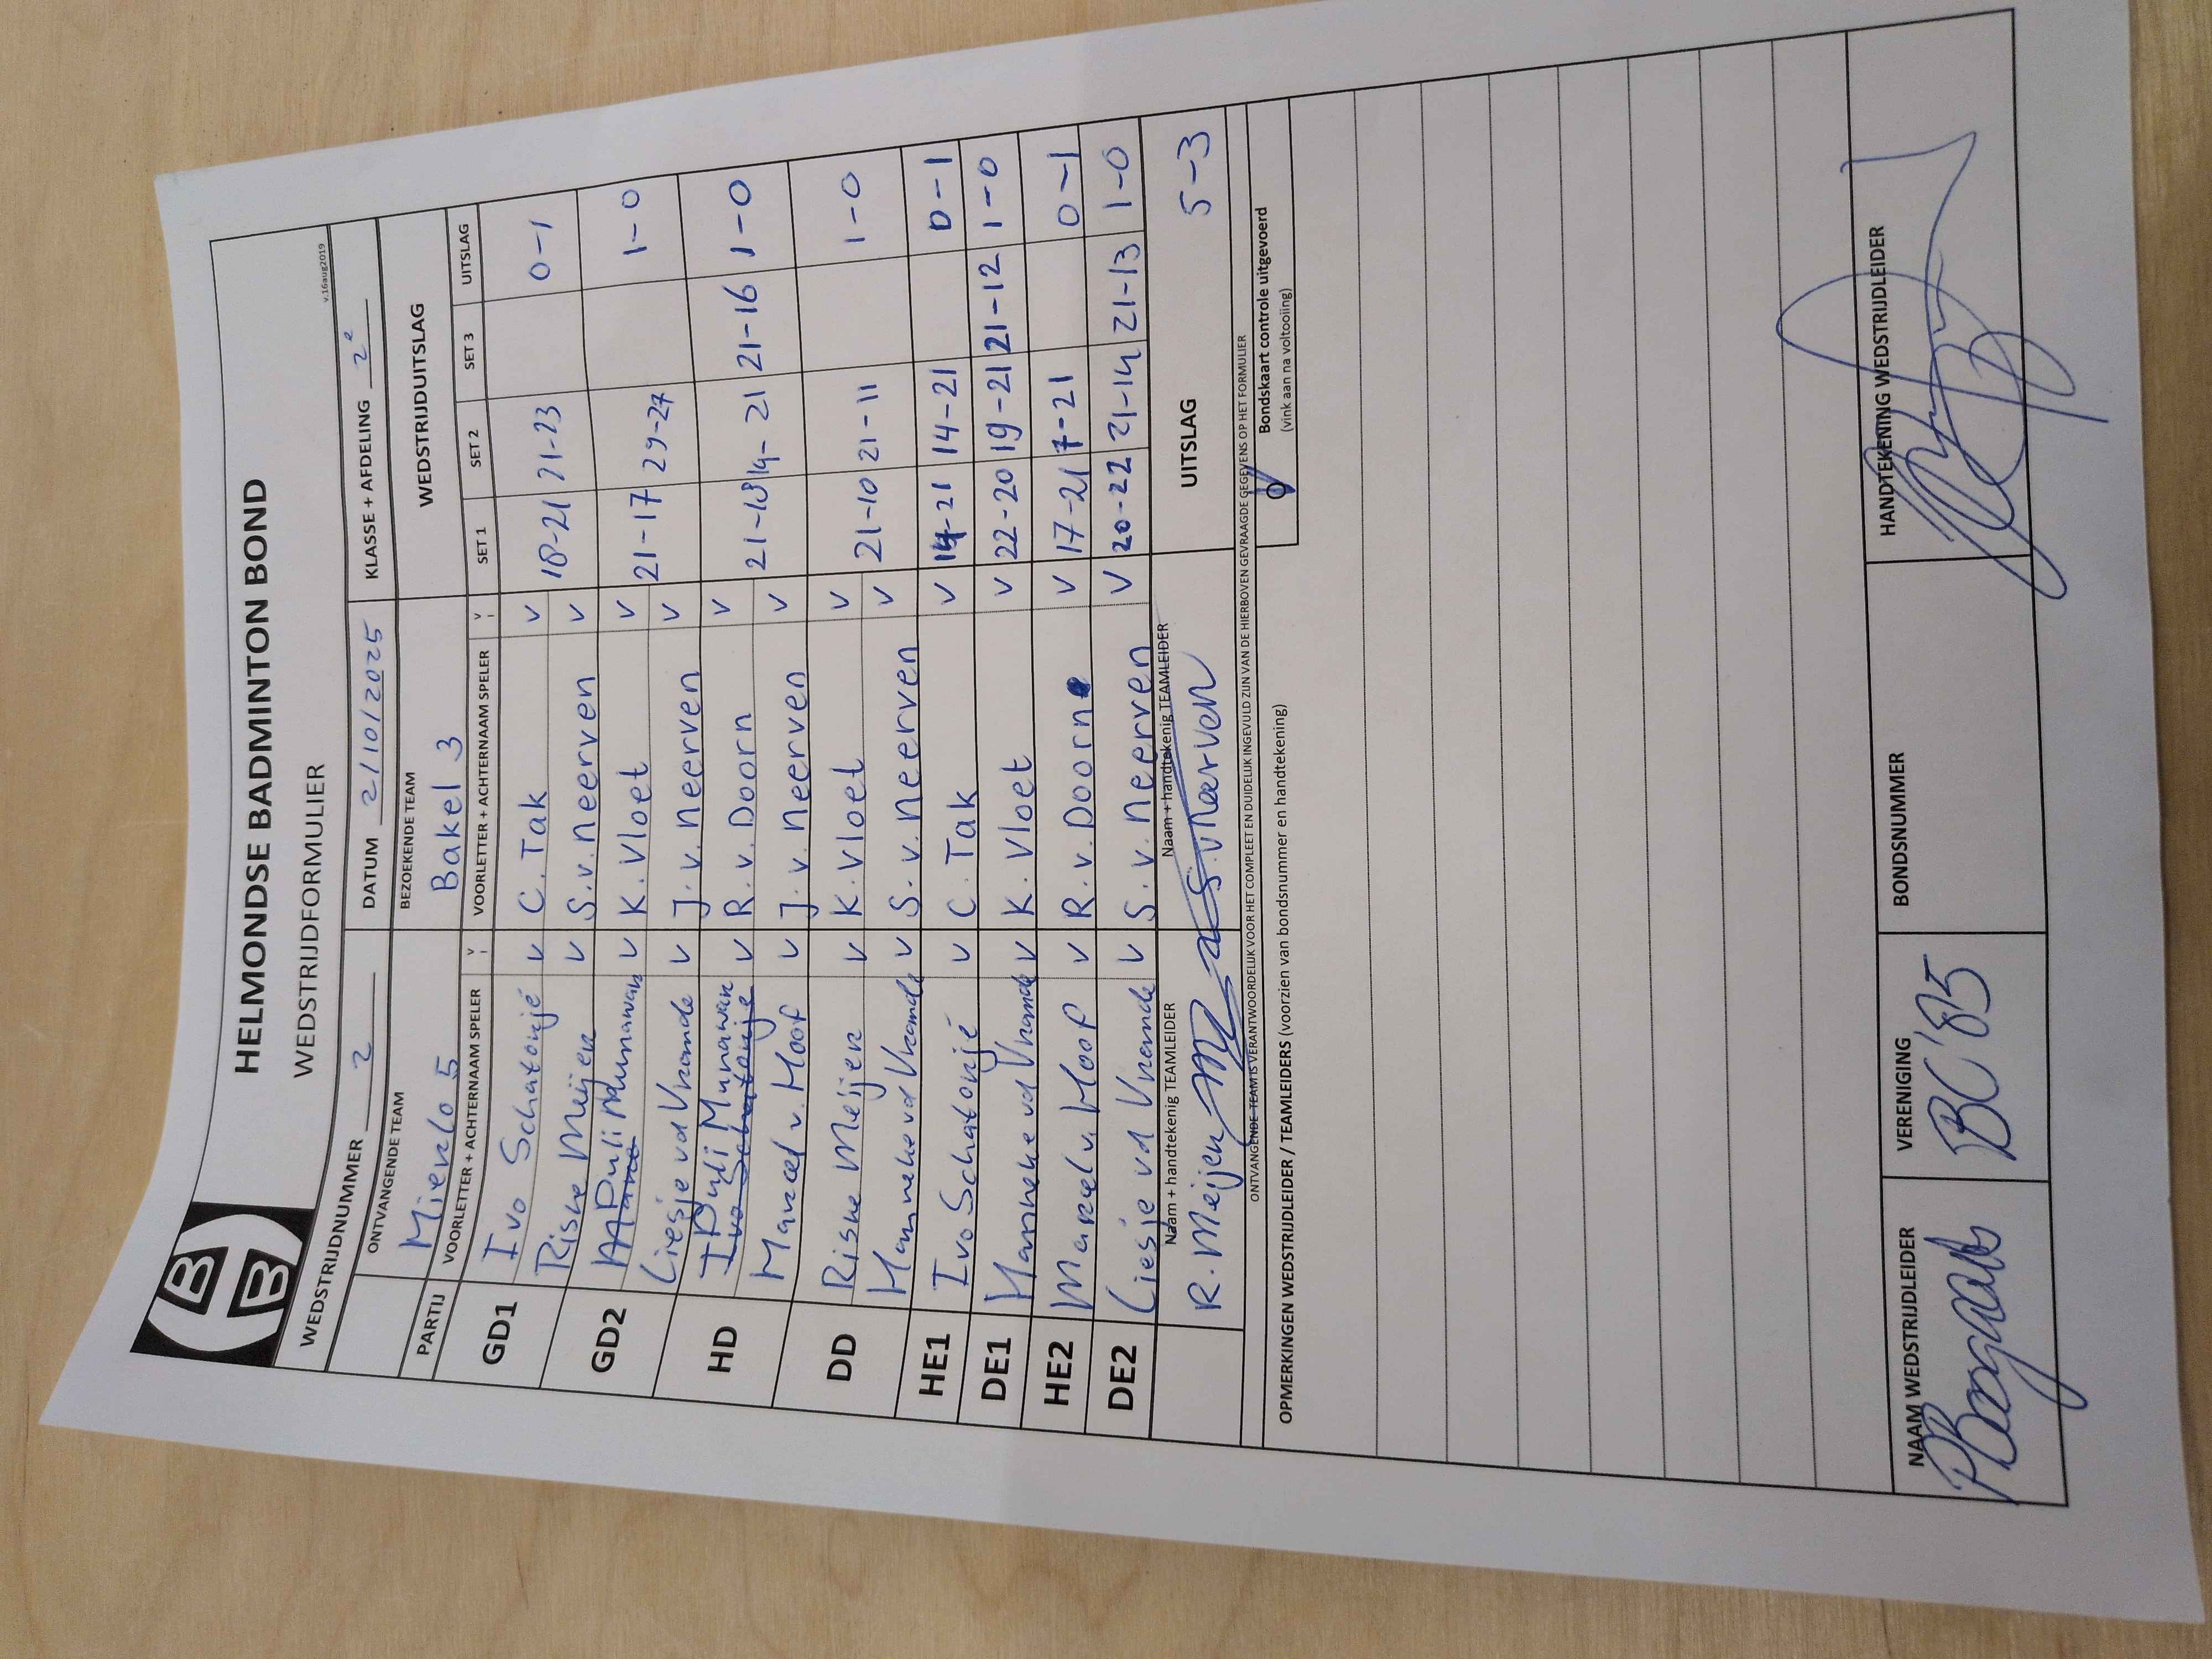 HELMONDSE BADMINTON BOND
WEDSTRIJDFORMULIER
v.16aug2019
WEDSTRIJDNUMMER 2 DATUM 2/10/2025 KLASSE + AFDELING 2e
ONTVANGENDE TEAM BEZOEKENDE TEAM WEDSTRIJDUITSLAG
Mierlo 5 Bakel 3
PARTIJ VOORLETTER + ACHTERNAAM SPELER V VOORLETTER + ACHTERNAAM SPELER V SET 1 SET 2 SET 3 UITSLAG
GD1 Ivo Schatorjé v C. Tak v 18-21 21-23 0-1
Riske Meijer v S.v.neerven v
GD2 Puli Munawan v K. Vloet v 21-17 29-27 1-0
Liesje vd Vrande v J.v.neerven v
HD Puli Munawan v R.v.Doorn v 21-18 19-21 21-16 1-0
Ivo Schatorjé
Marcel v. Hoof v J.v.neerven v
DD Riske Meijer v K.Vloet v 21-10 21-11 1-0
Hanneke vd Vrande v S.v.neerven v
HE1 Ivo Schatorjé v C. Tak v 14-21 14-21 0-1
DE1 Hanneke vd Vrande v K. Vloet v 22-20 19-21 21-12 1-0
HE2 Marcel v. Hoof v R.v.Doorn v 17-21 7-21 0-1
DE2 Liesje vd Vrande v S.v.neerven v 20-22 21-14 21-13 1-0
Naam + handtekenig TEAMLEIDER Naam + handtekenig TEAMLEIDER
R. Meijer S.v.Neerven UITSLAG 5-3
ONTVANGENDE TEAM IS VERANTWOORDELIJK VOOR HET COMPLEET EN DUIDELIJK INGEVULD ZIJN VAN DE HIERBOVEN GEVRAAGDE GEGEVENS OP HET FORMULIER
OPMERKINGEN WEDSTRIJDLEIDER / TEAMLEIDERS (voorzien van bondsnummer en handtekening)
O Bondskaart controle uitgevoerd
(vink aan na voltooiing)
NAAM WEDSTRIJDLEIDER VERENIGING BONDSNUMMER HANDTEKENING WEDSTRIJDLEIDER
BC'85